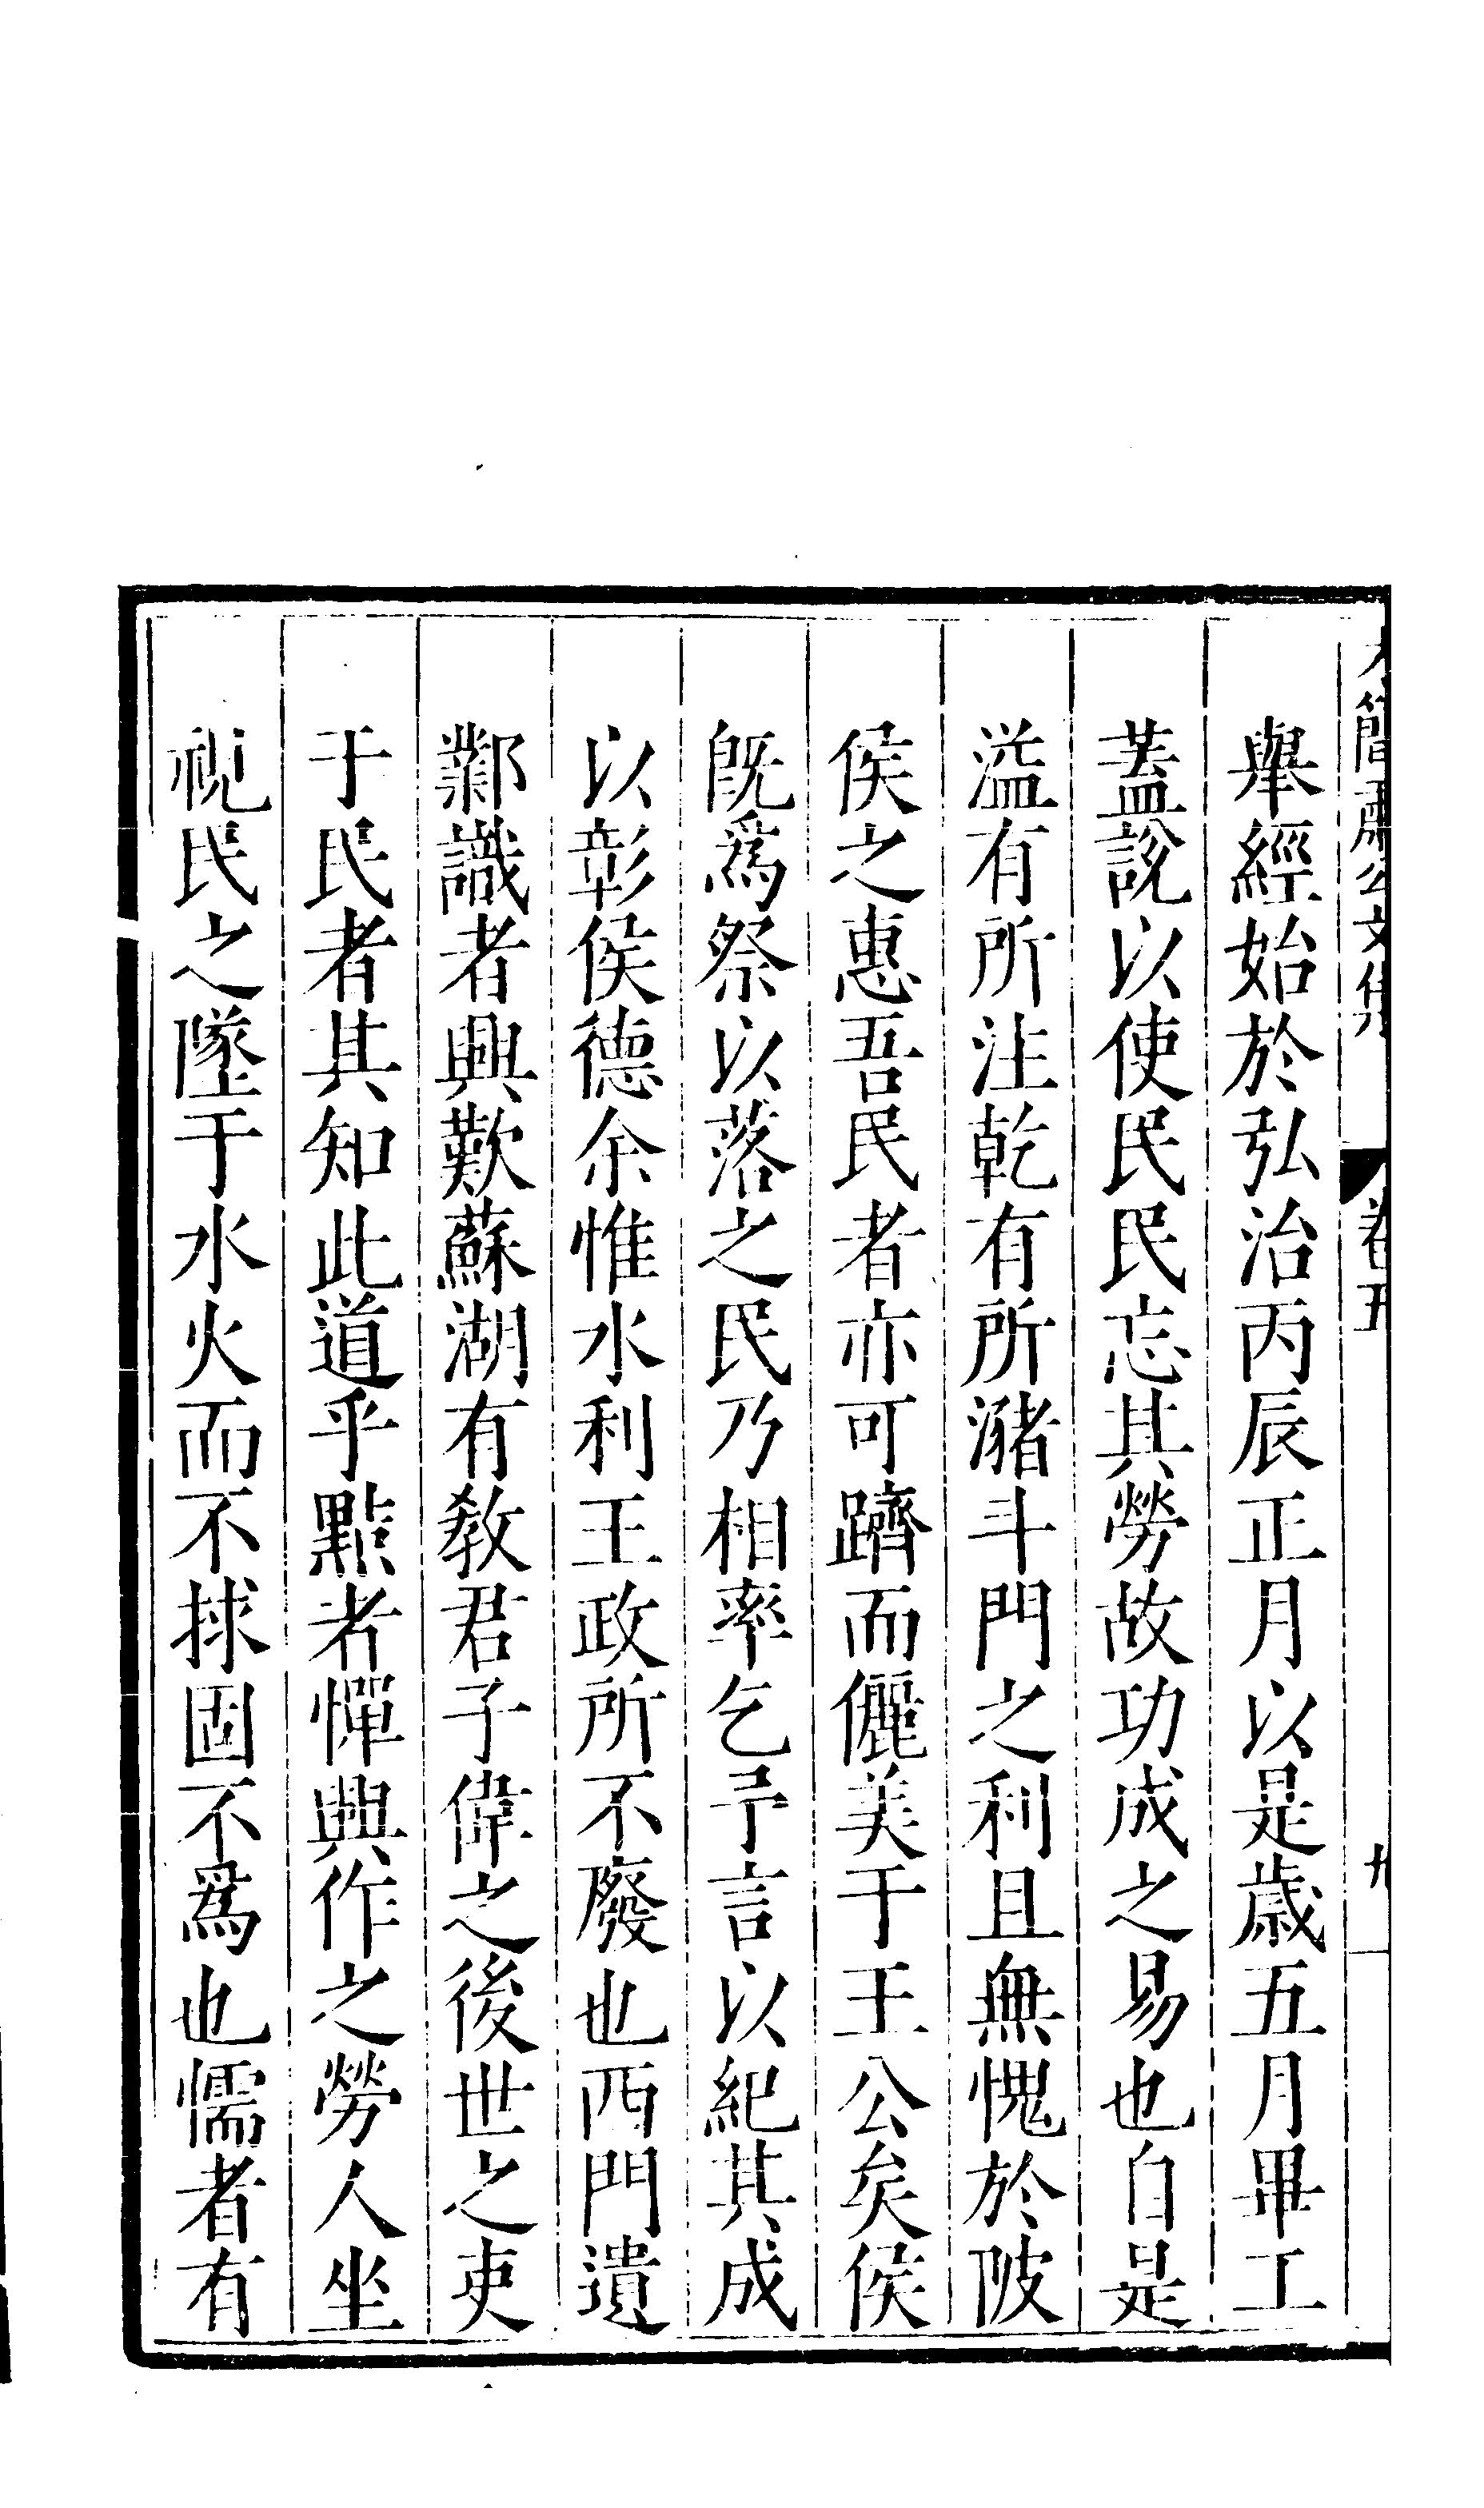 簡肅公文集 卷五 九
舉經始於弘治丙辰正月以是歲五月畢工
蓋說以使民民忘其勞故功成之易也自是
溢有所注乾有所瀦斗門之利且無愧於陂
侯之惠吾民者亦可躋而儷美于王公矣侯
旣爲祭以落之民乃相率乞予言以紀其成
以彰侯德余惟水利王政所不廢也西門遺
鄴識者興歎蘇湖有敎君子偉之後世之吏
于民者其知此道乎點者憚興作之勞人坐
視民之墜于水火而不捄固不爲也懦者有